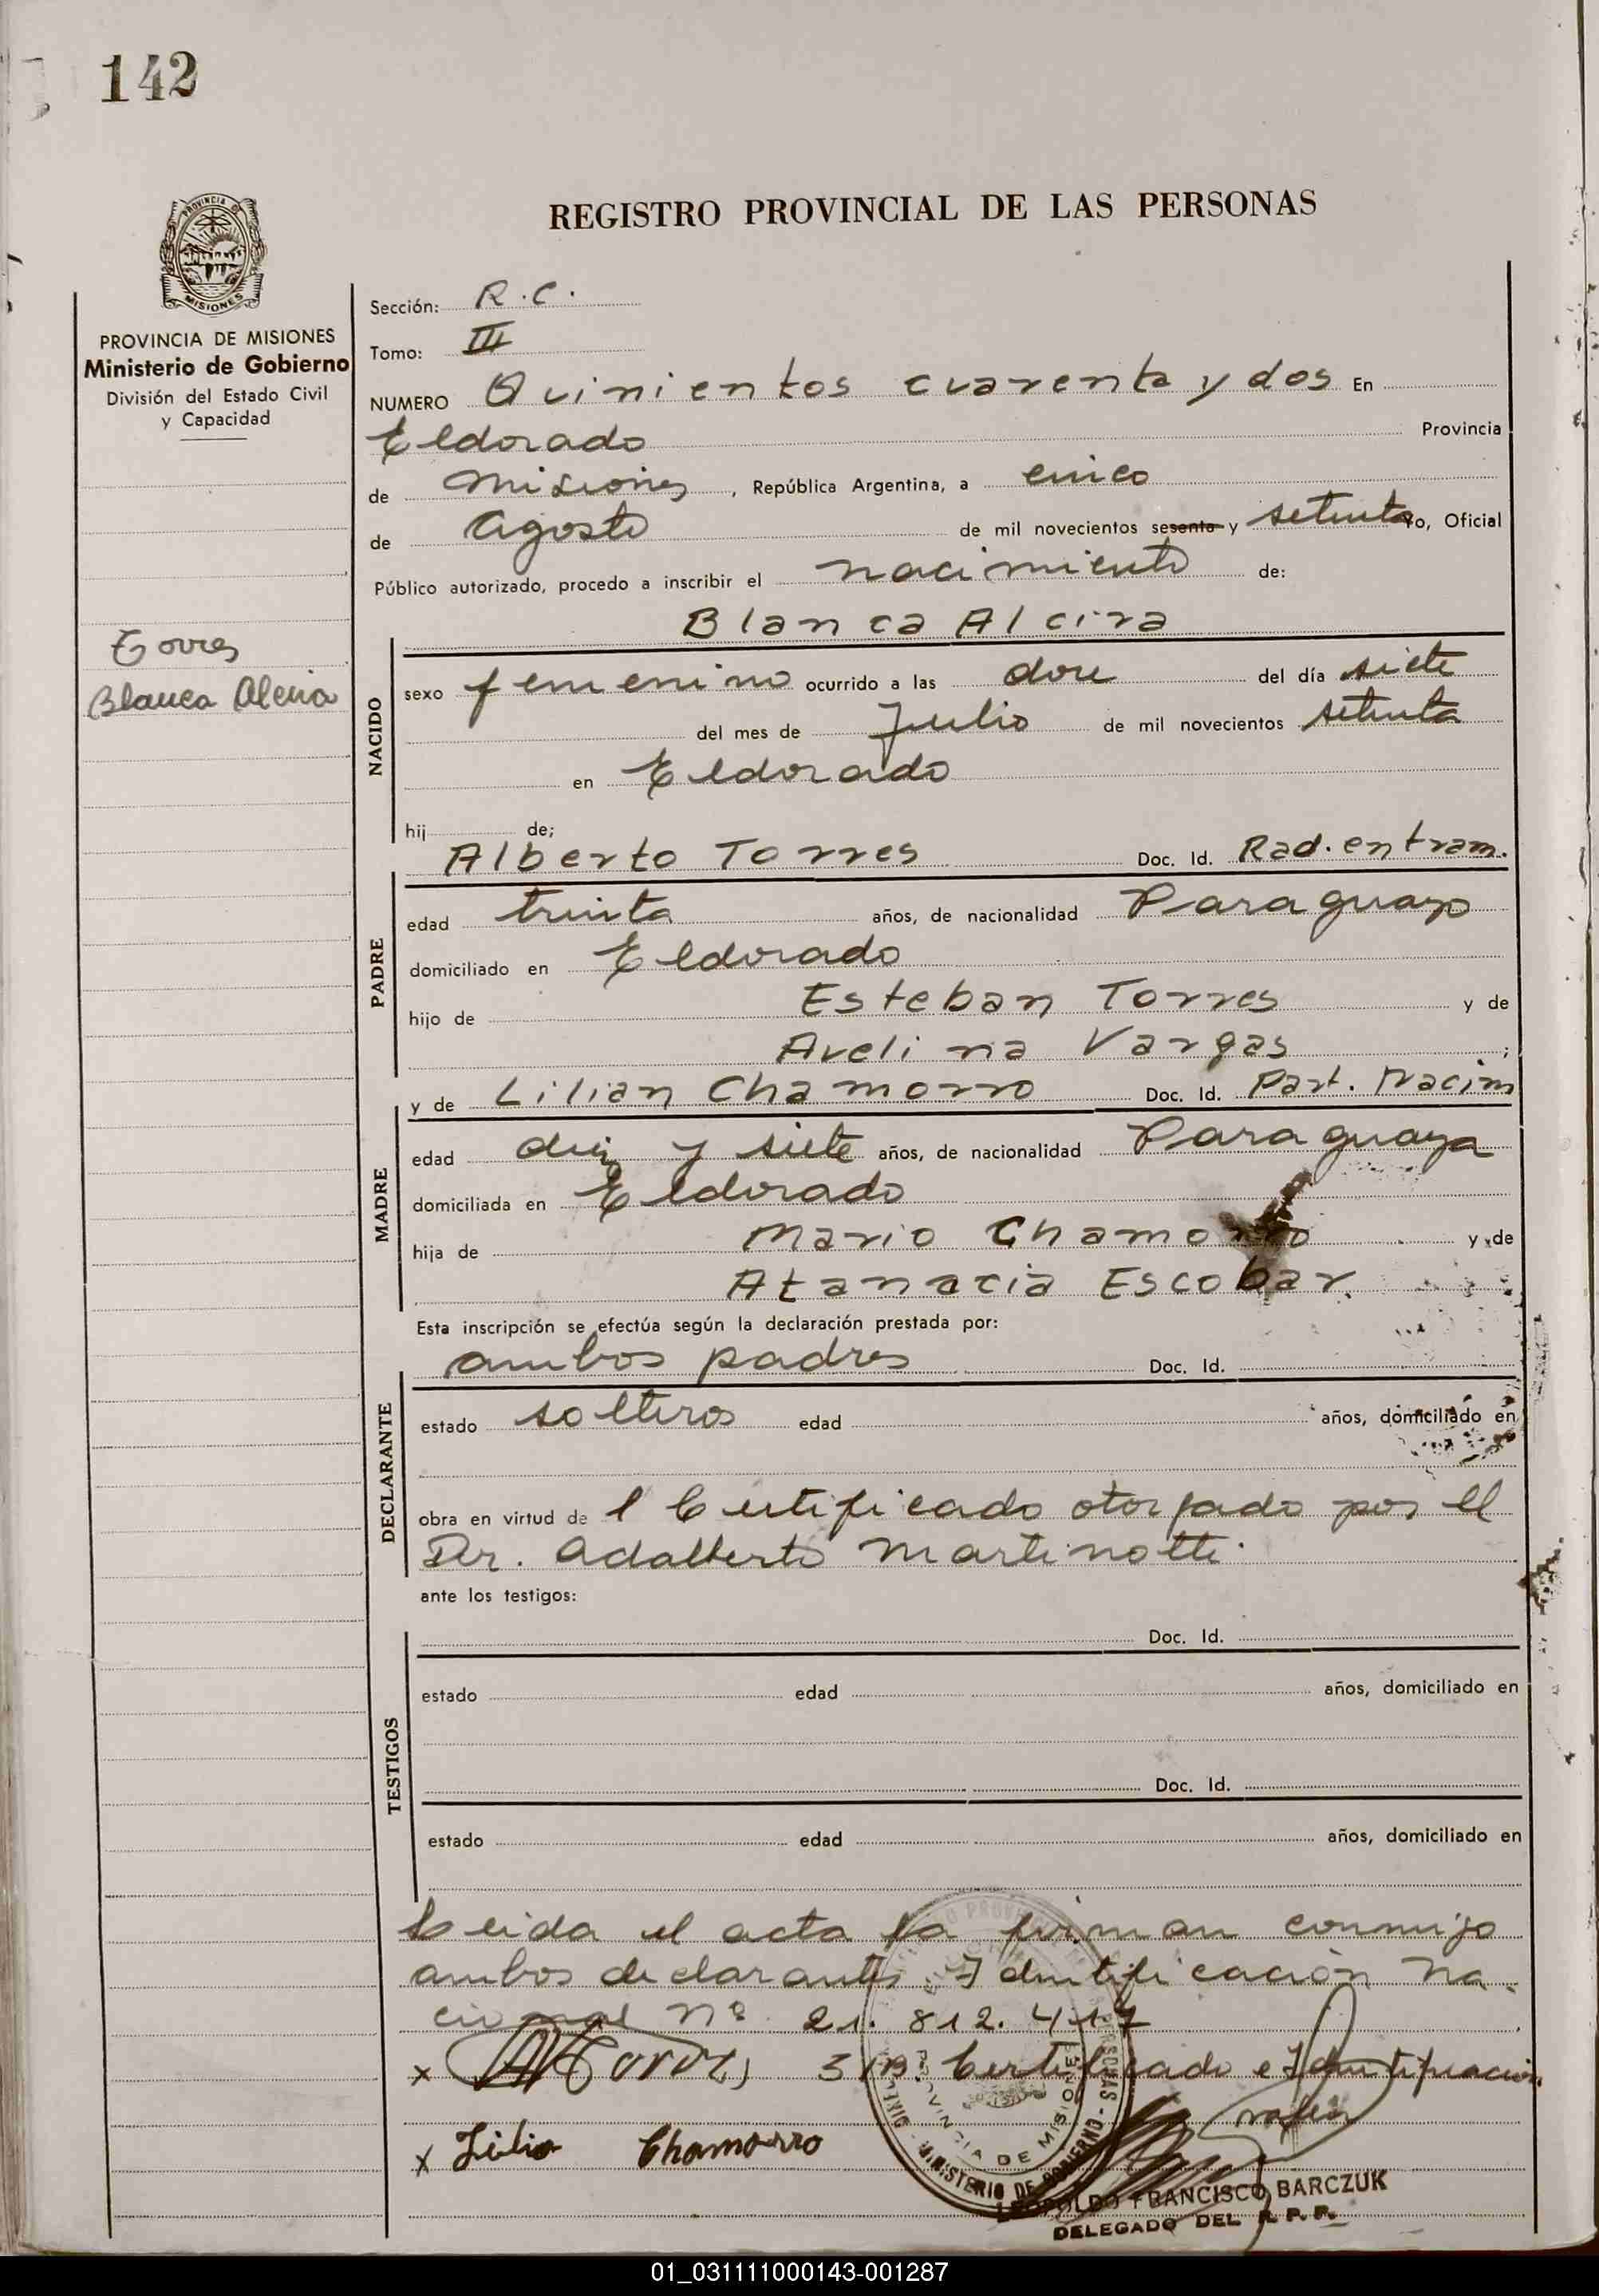 142
REGISTRO PROVINCIAL DE LAS PERSONAS
PROVINCIA DE
MISIONES
PROVINCIA DE MISIONES
Ministerio de Gobierno
División del Estado Civil
y Capacidad
Torres
Blanca Alcira
Sección: R.C.
Tomo: III
NUMERO Quinientos cuarenta y dos En
Eldorado Provincia
de Misiones, República Argentina, a cinco
de Agosto de mil novecientos sesenta y setenta Yo, Oficial
Público autorizado, procedo a inscribir el nacimiento de:
Blanca Alcira
NACIDO
sexo femenino ocurrido a las doce del día siete
del mes de Julio de mil novecientos setenta
en Eldorado
hij de;
Alberto Torres Doc. Id. Rad. en tram.
PADRE
edad treinta años, de nacionalidad Paraguayo
domiciliado en Eldorado
hijo de Esteban Torres y de
Avelina Vargas ;
y de Lilian Chamorro Doc. Id. Part. Nacim
MADRE
edad diez y siete años, de nacionalidad Paraguaya
domiciliada en Eldorado
hija de Mario Chamorro y de
Atanacia Escobar.
Esta inscripción se efectúa según la declaración prestada por:
ambos padres Doc. Id.
DECLARANTE
estado solteros edad años, domiciliado en
obra en virtud de l Certificado otorgado por el
Dr. Adalberto Martinotti.
ante los testigos:
Doc. Id.
TESTIGOS
estado edad años, domiciliado en
Doc. Id.
estado edad años, domiciliado en
Leida el acta la firman conmigo
ambos declarantes. Identificación Na-
cional nº 21.812.417
x Torres S/B. Certificado e Identificación
valen
x Lilia Chamorro
PROVINCIA DE MISIONES
MINISTERIO DE GOBIERNO
LEOPOLDO FRANCISCO BARCZUK
DELEGADO DEL R. P. P.
01_031111000143-001287